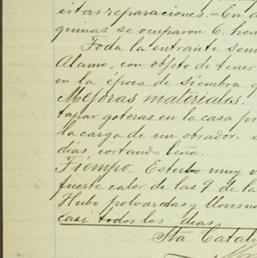 estas reparaciones.- En a
quinas se ocuparon 6. hom
Toda la entrante sem
Alamo, con objeto de tener
en la época de siembra q
Mejoras materiales.
tapar goteras en la casa pr
la carga de un obrador. e
dias cortando leña.
Tiempo. Estubo muy v
fuerte calor de las 9 de la
Hubo polvaredas y llovisn
casi todos los dias,
Sta. Catal